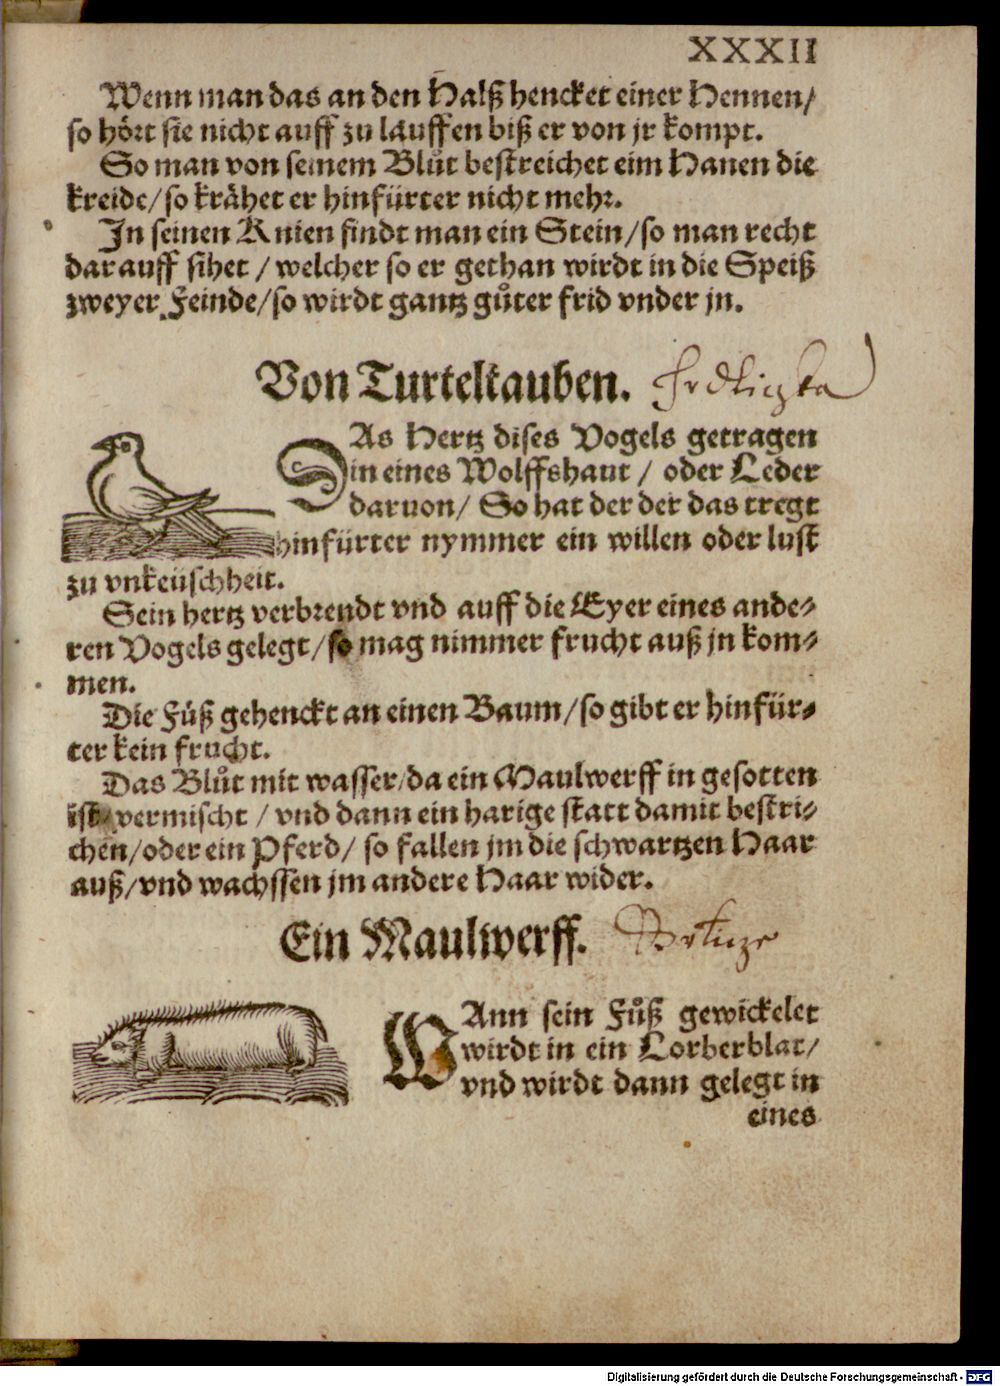 XXXII
Wenn man das an den Halß hencket einer Hennen/
so hört sie nicht auff zu lauffen biß er von jr kompt.
So man von seinem Blůt bestreichet eim Hanen die
kreide/so krähet er hinfürter nicht mehr.
In seinen Knien findt man ein Stein/so man recht
darauff sihet / welcher so er gethan wirdt in die Speiß
zweyer Feinde/so wirdt gantz gůter frid vnder jn.
Von Turteltauben.
DAs Hertz dises Vogels getragen
in eines Wolffshaut / oder Leder
daruon/ So hat der der das tregt
hinfürter nymmer ein willen oder lust
zu vnkeüschheit.
Sein hertz verbrendt vnd auff die Eyer eines ande-
ren Vogels gelegt/so mag nimmer frucht auß jn kom-
men.
Die Füß gehenckt an einen Baum/so gibt er hinfür-
ter kein frucht.
Das Blůt mit wasser/da ein Maulwerff in gesotten
ist/vermischt / vnd dann ein harige statt damit bestri-
chen/oder ein Pferd/ so fallen jm die schwartzen Haar
auß/vnd wachssen jm andere Haar wider.
Ein Maulwerff.
WAnn sein Fůß gewickelet
wirdt in ein Lorberblat/
vnd wirdt dann gelegt in
eines
Digitalisierung gefördert durch die Deutsche Forschungsgemeinschaft - DFG